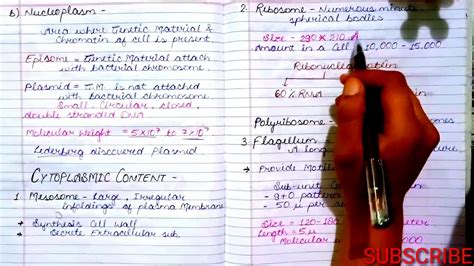 b) Nucleoplasm -
Area where Genetic Material &
Chromatin of cell is present.
Episome = Genetic Material attach
with bacterial chromosome.
Plasmid = G.M. is not attached
with bacterial chromosome
Small, Circular, closed,
double stranded DNA
Molecular Weight = 5×10⁷ to 7×10⁷.
Lederberg discovered Plasmid
CYTOPLASMIC CONTENT -
1. Mesosome - Large, Irregular
infoldings of plasma Membrane
→ Synthesis Cell Wall
→ Secrete Extracellular sub.
2. Ribosome - Numerous minute
spherical bodies
Size - 290 × 210 Å
Amount in a Cell 10,000 - 15,000
60% RNA
Polyribosome -
3. Flagellum -
A long
→ Provide Motili
Sub-unit
- 9+0 pattern
- 50 µ per
Size = 120-18
Length = 5 µ
Molecular
SUBSCRIBE